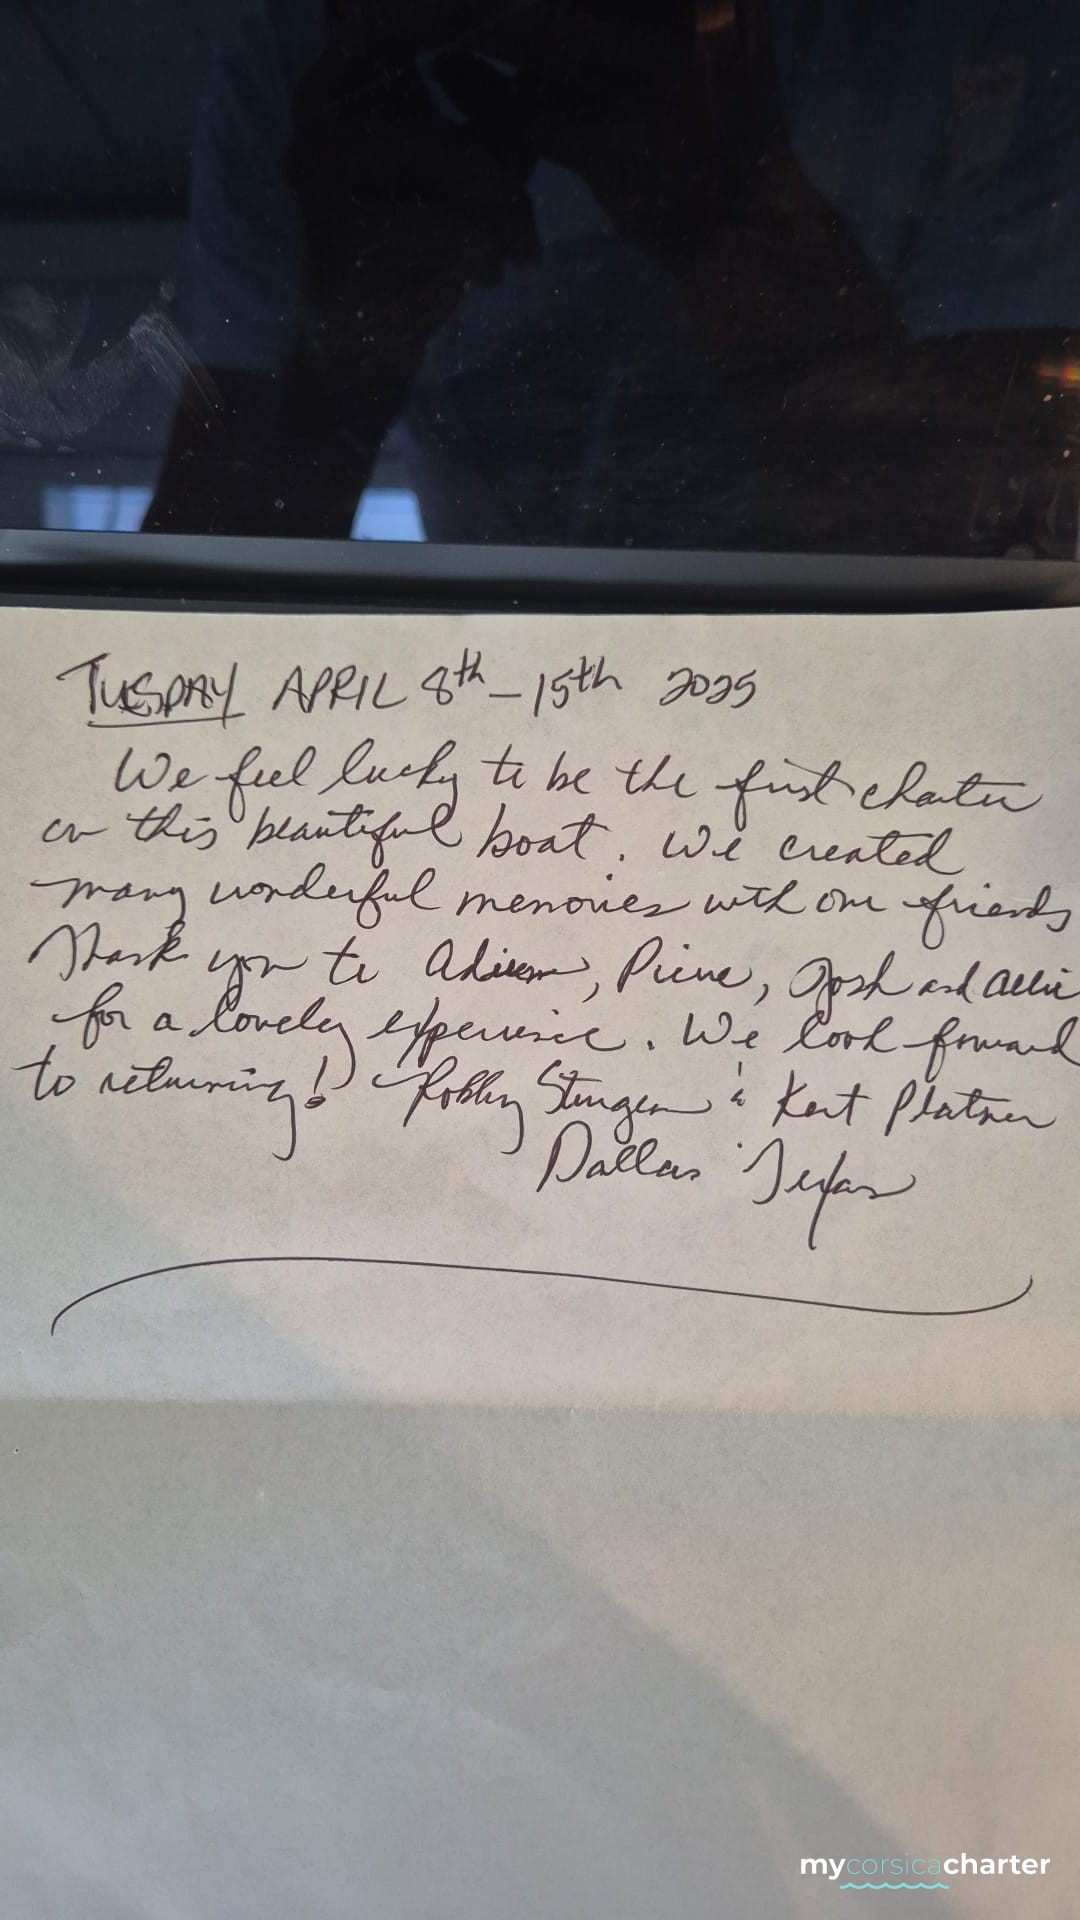 TUESDAY APRIL 8th - 15th 2025
We feel lucky to be the first charter
on this beautiful boat. We created
many wonderful memories with our friends
Thank you to Pierre, Josh and Allie
for a lovely experience. We look forward
to returning! Robbie Sturgeon & Kurt Platner
Dallas Texas
mycorsicacharter